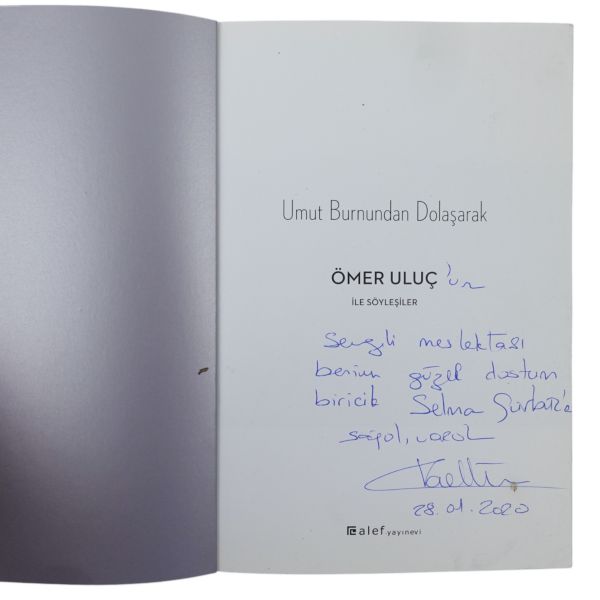 Umut Burnundan Dolaşarak
ÖMER ULUÇ 'un
İLE SÖYLEŞİLER
Sevgili meslektaşı
benim güzel dostum
biricik Selma Gürbüz'e
sağol, varol
28.01.2020
alef yayınevi